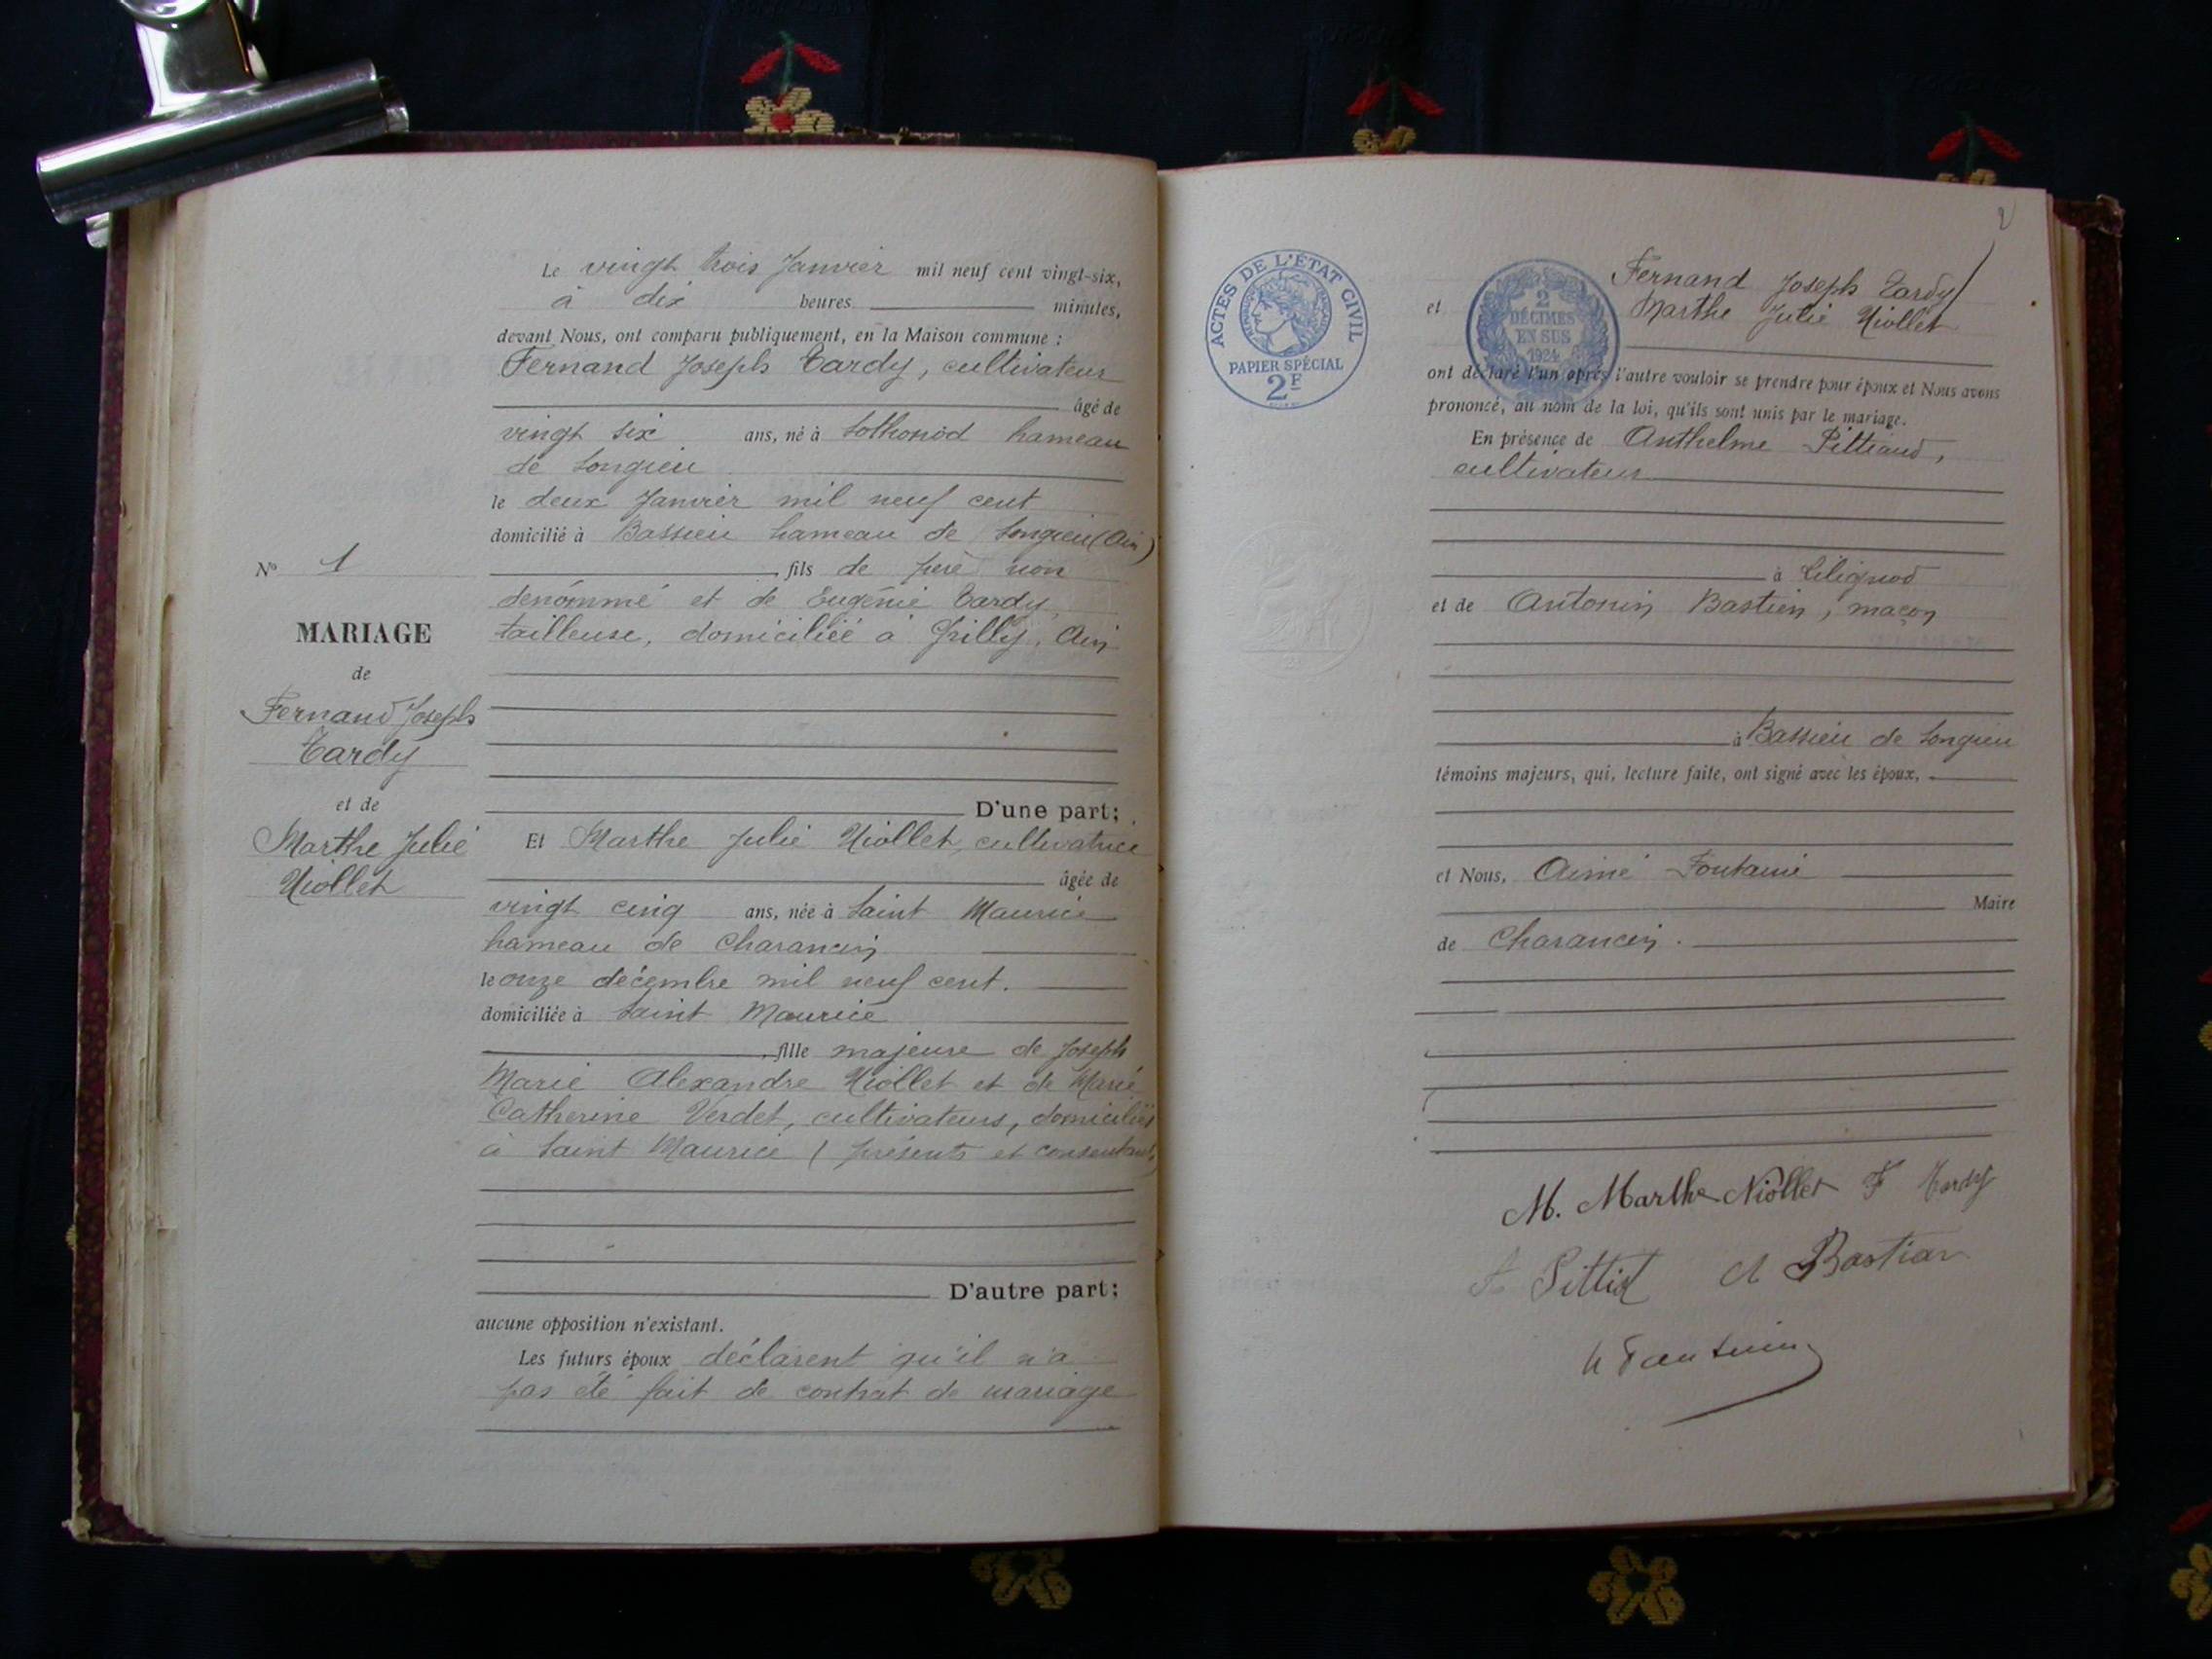 Le vingt trois Janvier mil neuf cent vingt-six,
à dix heures minutes,
devant Nous, ont comparu publiquement, en la Maison commune :
Fernand Joseph Tardy, cultivateur
âgé de
vingt six ans, né à Sothonod hameau
de Songieu
le deux Janvier mil neuf cent
domicilié à Bassieu hameau de Songieu (Ain)
fils de père non
dénommé et de Eugénie Tardy,
tailleuse, domiciliée à Grilly, Ain
D'une part;
Et Marthe Julie Niollet, cultivatrice
âgée de
vingt cinq ans, née à Saint Maurice
hameau de Charancin
le onze décembre mil neuf cent.
domiciliée à Saint Maurice
, fille majeure de Joseph
Marie Alexandre Niollet et de Marie
Catherine Verdet, cultivateurs, domiciliés
à Saint Maurice (présents et consentants)
D'autre part;
aucune opposition n'existant.
Les futurs époux déclarent qu'il n'a
pas été fait de contrat de mariage
N° 1
MARIAGE
de
Fernand Joseph
Tardy
et de
Marthe Julie
Niollet
2
ACTES DE L'ÉTAT CIVIL
PAPIER SPÉCIAL
2F
2
DÉCIMES
EN SUS
1924
Fernand Joseph Tardy
et Marthe Julie Niollet
ont déclaré l'un après l'autre vouloir se prendre pour époux et Nous avons
prononcé, au nom de la loi, qu'ils sont unis par le mariage.
En présence de Anthelme Pittiaud,
cultivateur
à Lilignod
et de Antonin Bastien, maçon
à Bassieu de Songieu
témoins majeurs, qui, lecture faite, ont signé avec les époux,
et Nous, Aimé Fontaine
Maire
de Charancin.
M. Marthe Niollet F Tardy
A Bastian